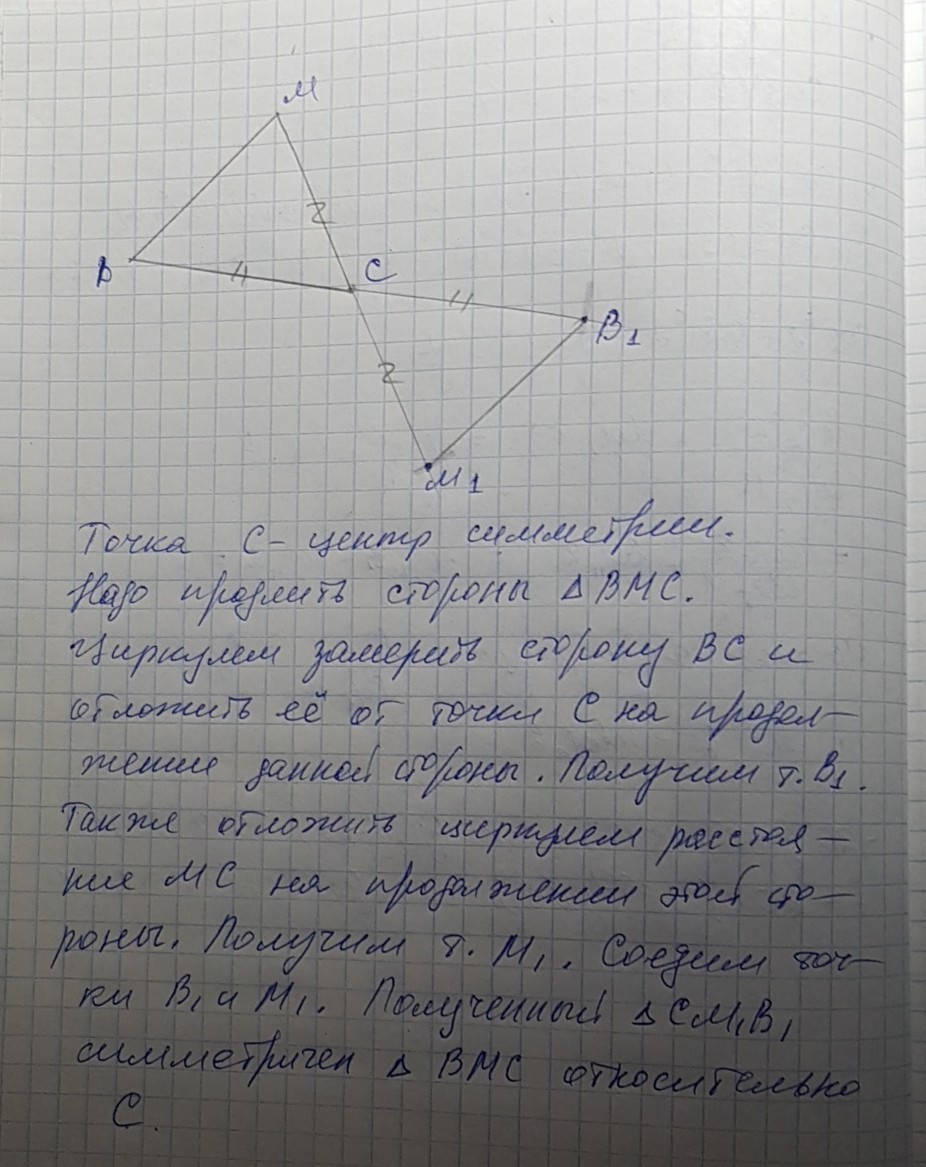 М
В
С
В1
М1
Точка С - центр симметрии.
Надо продлить стороны Δ ВМС.
Циркулем замерить сторону ВС и
отложить её от точки С на продол-
жение данной стороны. Получим т. В1.
Также отложить циркулем расстоя-
ние МС на продолжении этой сто-
роны. Получим т. М1. Соедим точ-
ки В1 и М1. Полученный Δ СМ1В1
симметричен Δ ВМС относительно
С.